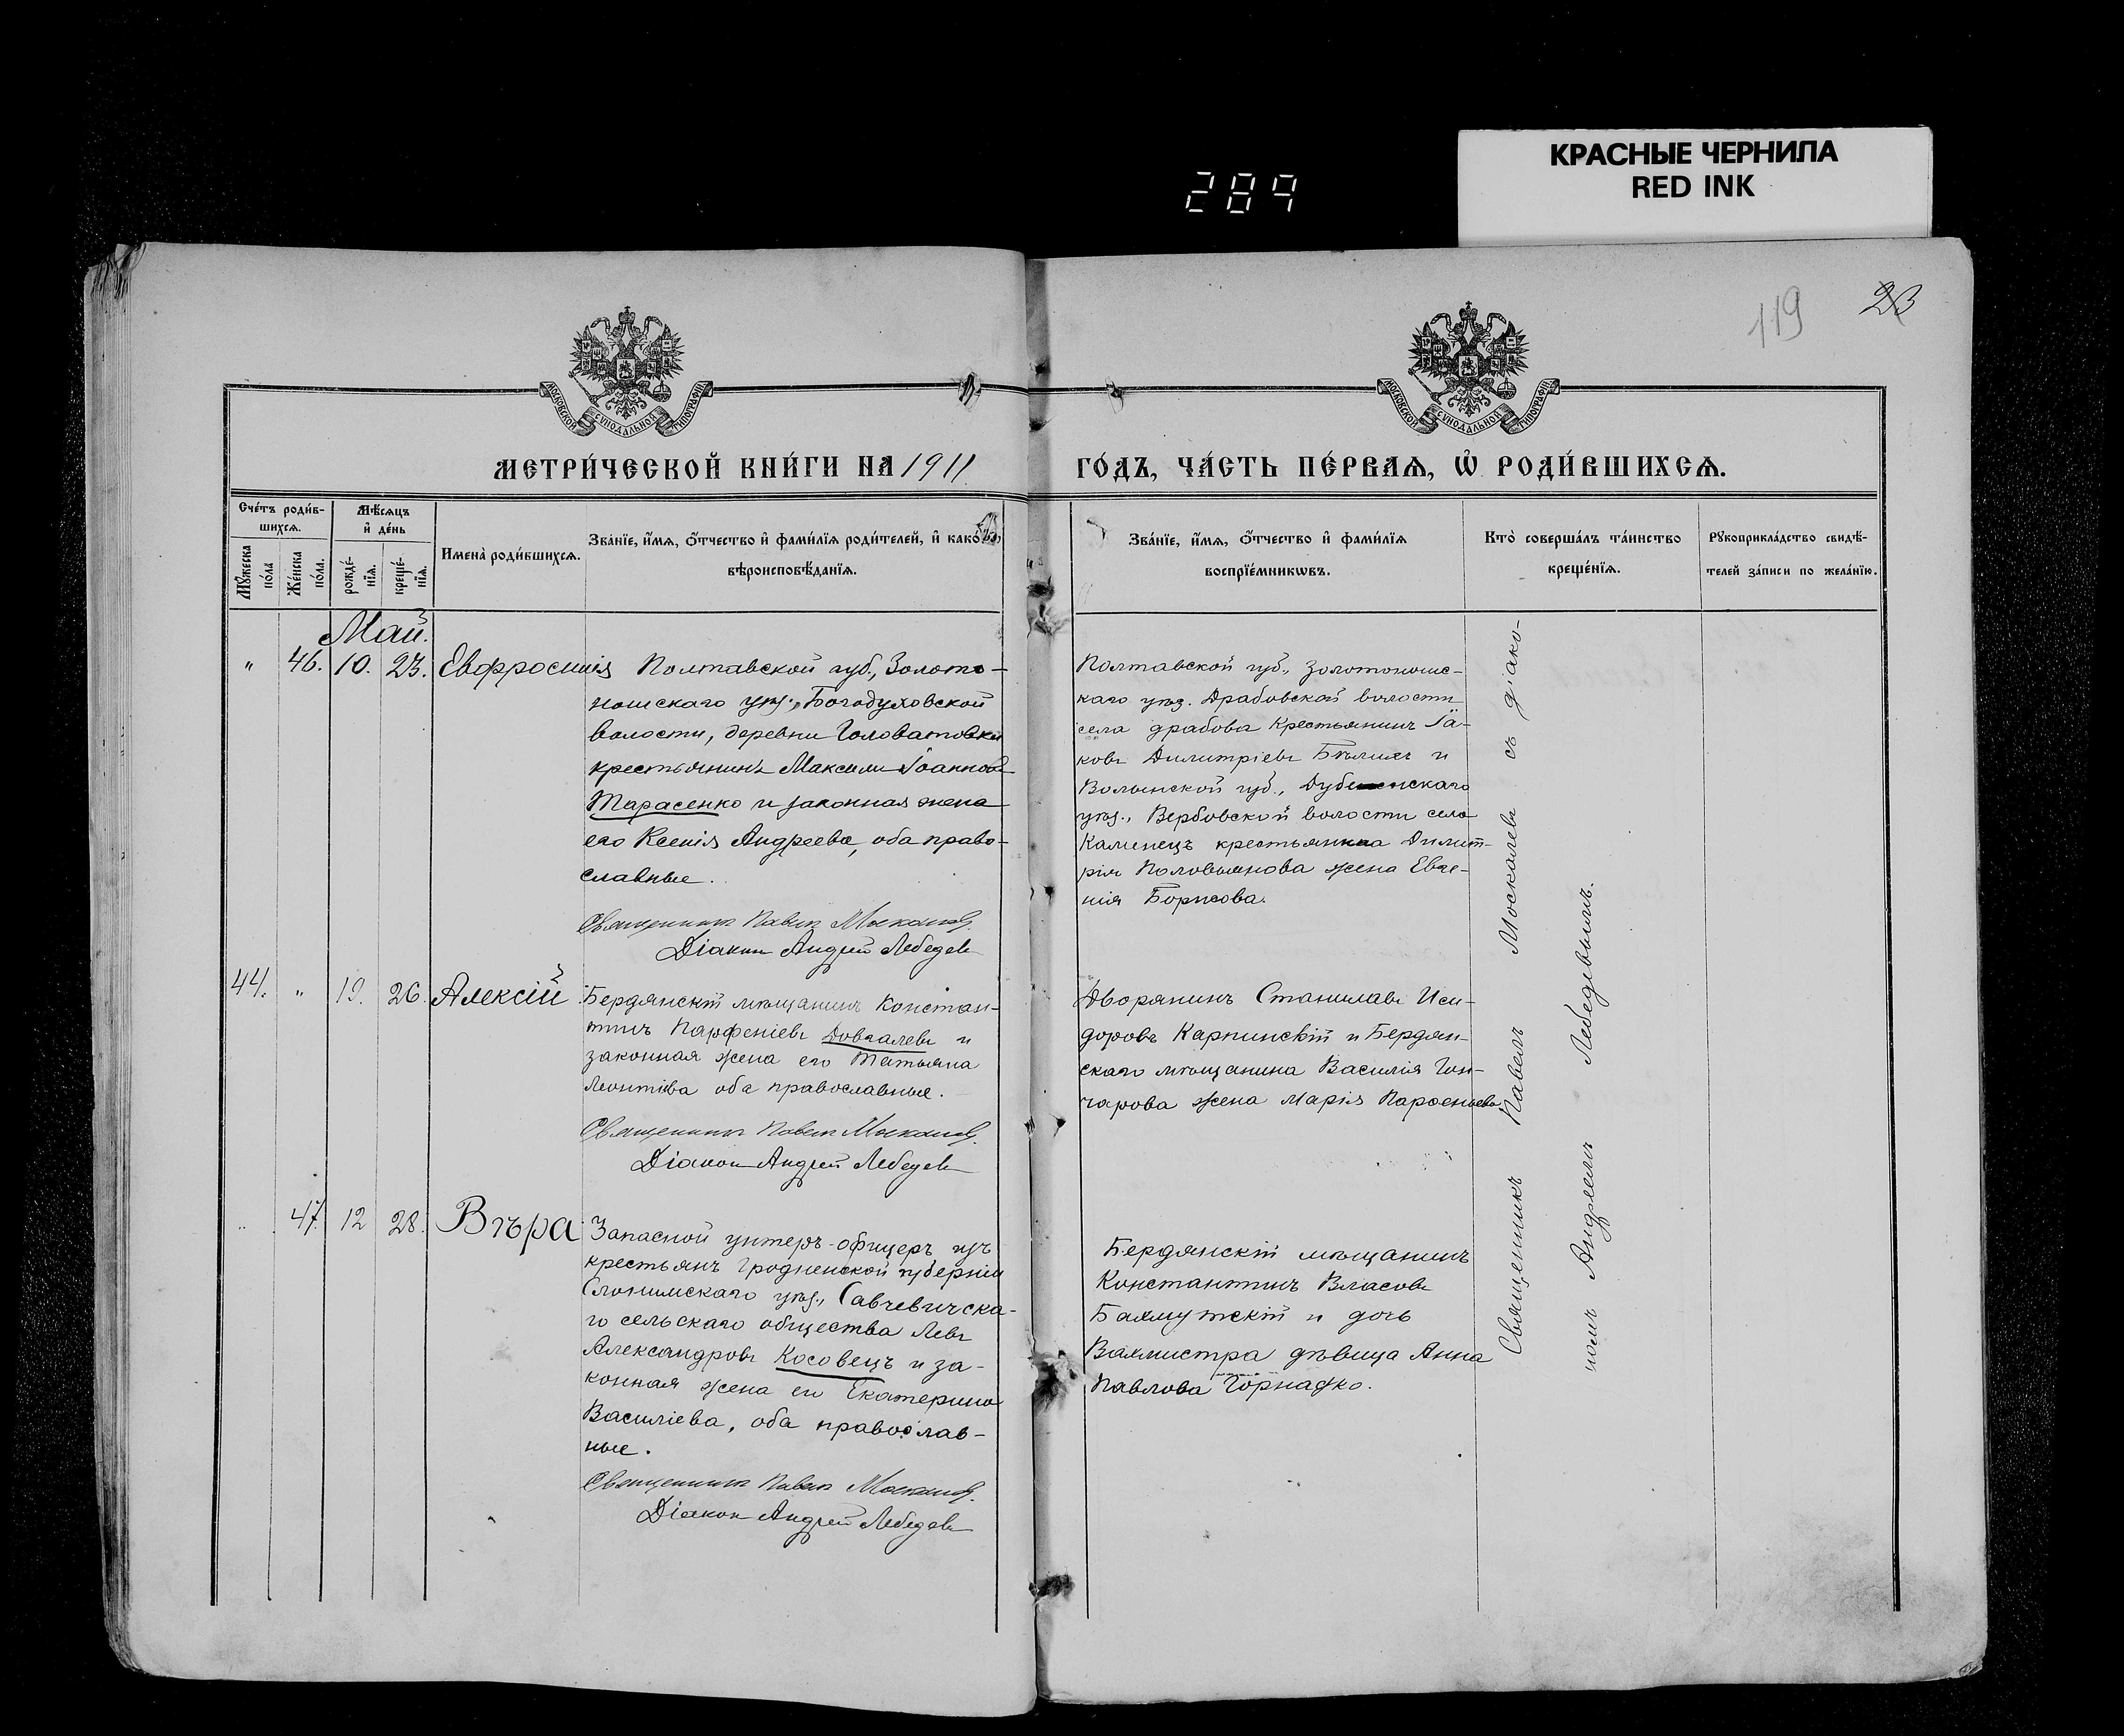 КРАСНЫЕ ЧЕРНИЛА
RED INK
289
119
23
МОСКОВСКОЙ СУНОДАЛЬНОЙ ТИПОГРАФІИ
МОСКОВСКОЙ СУНОДАЛЬНОЙ ТИПОГРАФІИ
МЕТРИ́ЧЕСКОЙ КНИ́ГИ НА 1911
ГО́ДЪ, ЧА́СТЬ ПЕ́РВАѦ, Ѡ҆ РОДИ́ВШИХСѦ.
Сче́тъ роди́в-
шихсѧ.
Мꙋ́жеска
по́ла
Же́нска
по́ла.
Мѣ́сѧцъ
и҆ де́нь
рожде́-
нїѧ.
креще́-
нїѧ.
Имена̀ роди́вшихсѧ.
Зва́нїе, и҆́мѧ, ѻ҆́тчество и҆ фами́лїѧ роди́телей, и҆ како́гѡ
вѣроисповѣ́данїѧ.
Зва́нїе, и҆́мѧ, ѻ҆́тчество и҆ фами́лїѧ
воспрїе́мникѡвъ.
Кто̀ соверша́лъ та́инство
креще́нїѧ.
Рꙋкоприкла́дство свидѣ́-
телей за́писи по жела́нїю.
Май.
" 46. 10. 23. Евфросинія
Полтавской губ., Золото-
ношскаго уѣз., Богодуховской
волости, деревни Головатовки
крестьянинъ Максимъ Іоанновъ
Тарасенко и законная жена
его Ксенія Андреева, оба право-
славные.
Священникъ Павелъ Москалевъ.
Діаконъ Андрей Лебедевъ
Полтавской губ., Золотоношс-
каго уѣз. Драбовской волости
села Драбова крестьянинъ Іа-
ковъ Димитріевъ Бѣликъ и
Волынской губ., Дубенскаго
уѣз., Вербовской волости села
Каменецъ крестьянина Димит-
рія Половьянова жена Евге-
нія Борисова.
44. " 19. 26. Алексій
Бердянскій мѣщанинъ Констан-
тинъ Парфеніевъ Довгалевъ и
законная жена его Татьяна
Леонтіева оба православные.
Священникъ Павелъ Москалевъ.
Діаконъ Андрей Лебедевъ
Дворянинъ Станиславъ Иси-
доровъ Карпинскій и Бердян-
скаго мѣщанина Василія Гон-
чарова жена Марія Парфеньева
" 47. 12 28. Вѣра
Запасной унтеръ-офицеръ изъ
крестьянъ Гродненской губерніи
Слонимскаго уѣз., Савчевичска-
го сельскаго общества Левъ
Александровъ Косовецъ и за-
конная жена его Екатерина
Василіева, оба православ-
ные.
Священникъ Павелъ Москалевъ.
Діаконъ Андрей Лебедевъ
Бердянскій мѣщанинъ
Константинъ Власовъ
Бахмутскій и дочь
Вахмистра дѣвица Анна
Павлова
Священникъ Павелъ Москалевъ съ діако-
номъ Андреемъ Лебедевымъ.